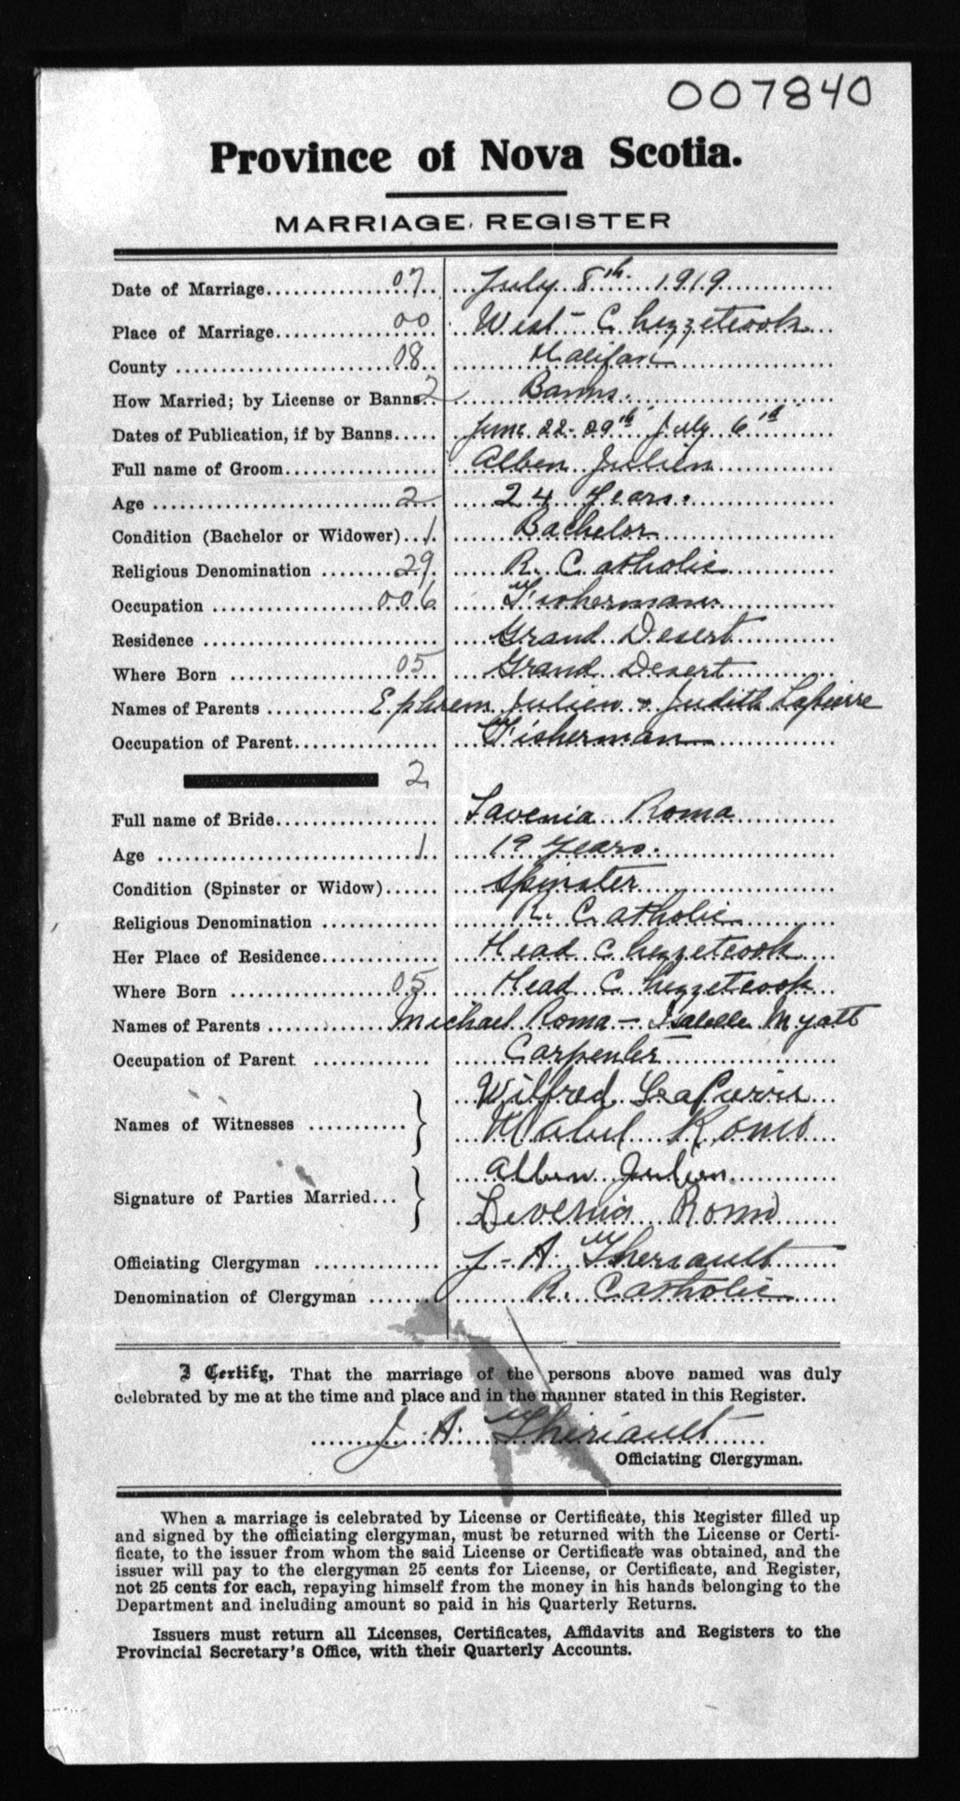 007840
Province of Nova Scotia.
MARRIAGE REGISTER
Date of Marriage 07 July 8th 1919
Place of Marriage 00 West - Chezzetcook
County 08 Halifax
How Married; by License or Banns 2 Banns.
Dates of Publication, if by Banns June 22-29th July 6th
Full name of Groom Alben Julien
Age 2 24 Years.
Condition (Bachelor or Widower) 1 Bachelor
Religious Denomination 29 R. Catholic
Occupation 006 Fisherman
Residence Grand Desert
Where Born 05 Grand Desert
Names of Parents Ephrem Julien & Judith Lapierre
Occupation of Parent Fisherman
2
Full name of Bride Lavenia Roma
Age 1 19 Years.
Condition (Spinster or Widow) Spinster
Religious Denomination R. Catholic
Her Place of Residence Head Chezzetcook
Where Born 05 Head Chezzetcook
Names of Parents Michael Roma - Isabelle Myatt
Occupation of Parent Carpenter
Wilfred
Names of Witnesses
Mabel Roma
Alben Julien
Signature of Parties Married
Levenia Roma
Officiating Clergyman J - A. Theriault
Denomination of Clergyman R. Catholic
I Certify, That the marriage of the persons above named was duly
celebrated by me at the time and place and in the manner stated in this Register.
J. A. Thériault
Officiating Clergyman.
When a marriage is celebrated by License or Certificate, this Register filled up
and signed by the officiating clergyman, must be returned with the License or Certi-
ficate, to the issuer from whom the said License or Certificate was obtained, and the
issuer will pay to the clergyman 25 cents for License, or Certificate, and Register,
not 25 cents for each, repaying himself from the money in his hands belonging to the
Department and including amount so paid in his Quarterly Returns.
Issuers must return all Licenses, Certificates, Affidavits and Registers to the
Provincial Secretary's Office, with their Quarterly Accounts.